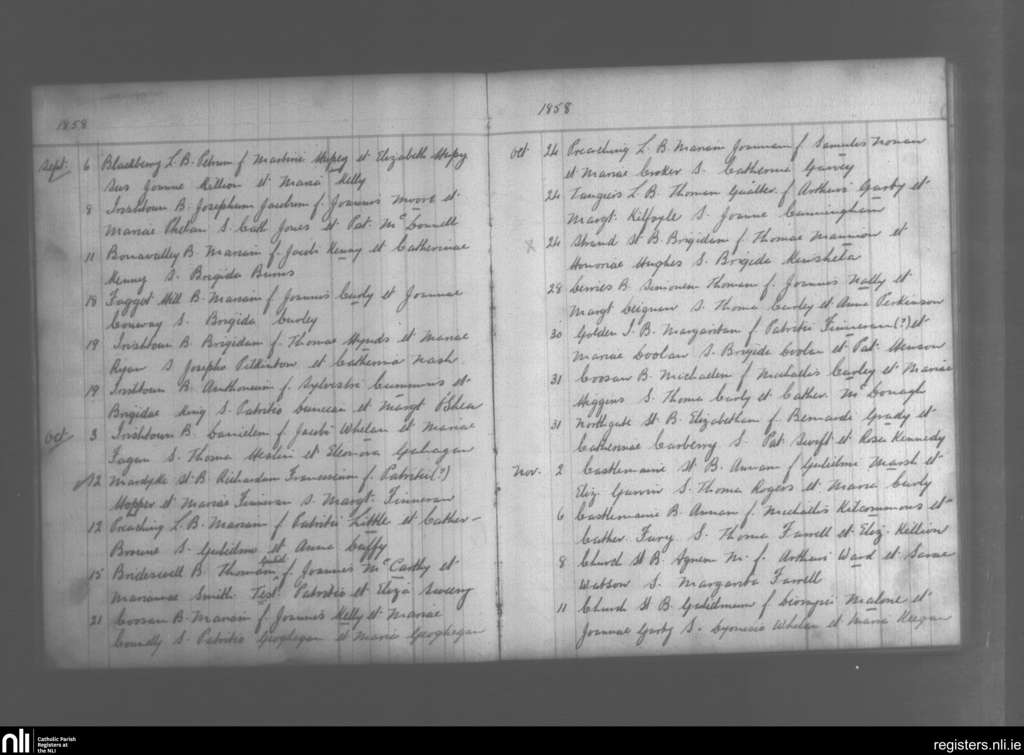 1858
Sept. 6 Blackberry L. B. Petrum f. Martini Hupey et Elizabeth Hupey
Sus Joanne Killion et Maria Kelly
8 Irishtown B. Josephum Jacobum f. Joannis Moore et
Mariae Phelan S. Cath Jones et Pat. McDonnell
11 Bonavalley B. Mariam f. Jacobi Kenny et Catherinae
Kenny S. Brigida Burns
18 Faggot Hill B. Mariam f. Joannis Curly et Joannae
Conway S. Brigida Curley
19 Irishtown B. Brigidam f. Thomae Hynds et Mariae
Ryan S Josepho Pilkinton et Catherina Nash
19 Irishtown B. Anthonium f. Sylvestri Cummins et
Brigidae King S. Patritio Duncan et Margt O'Shea
Oct 3 Irishtown B. Danielem f. Jacobi Whelan et Mariae
Fagan S. Thoma et Eleonora Gahagan
12 Mardyke St B. Richardum Franciscum f. Patritii (?)
Hopper et Mariae Finneran S. Margt. Finneran
12 Preaching L. B. Mariam f Patritii Little et Cather-
Browne S. Gulielmo et Anna Caffy
15 Brideswell B. Thomam f. Joannis McCarthy et
Mariannae Smith Test. Patritio et Eliza Sweeny
21 Coosan B. Mariam f. Joannis Kelly et Mariae
Connolly S. Patritio Geoghegan et Maria Geoghegan
1858
Oct 24 Preaching L. B. Mariam Joannam f. Samuelis Nonan
et Mariae Croker S. Catherina Garvey
24 Tanguies L. B. Thomam Gualter. f. Arthuri Garty et
Margt. Kilfoyle S. Joanne Cunningham
x 24 Strand St B. Brigidam f. Thomae Mannion et
Honoriae Hughes S. Brigida Kenshela
28 Cerries B. Simonem Thomam f. Joannis Nally et
Margt Deignan S. Thoma Curley et Anna Perkinson
30 Golden I. B. Margaritam f Patritii Finneran (?) et
Mariae Doolan S. Brigida Doolan et Pat Henson
31 Coosan B. Michaelem f Michaelis Curley et Mariae
Higgins S. Thoma Curly et Cather. McDonagh
31 Northgate St B. Elizabetham f. Bernardi Grady et
Catherinae Carberry S. Pat Swift et Rosa Kennedy
Nov. 2 Castlemaine St B. Annam f Gulielmi Marsh et
Eliz. Garvin S. Thoma Rogers et Maria Curly
6 Castlemaine B. Annam f. Michaelis Kitsimmons et
Cather. Fury S. Thoma Farrell et Eliz. Killion
8 Church St B. Agnem M. f. Arthuri Ward et Sarae
Watson S. Margarita Farrell
11 Church St B. Gulielmum f Georgii Malone et
Joannae Garty S. Dyonisio Whelan et Maria Keegan
nli Catholic Parish
Registers at
the NLI
registers.nli.ie